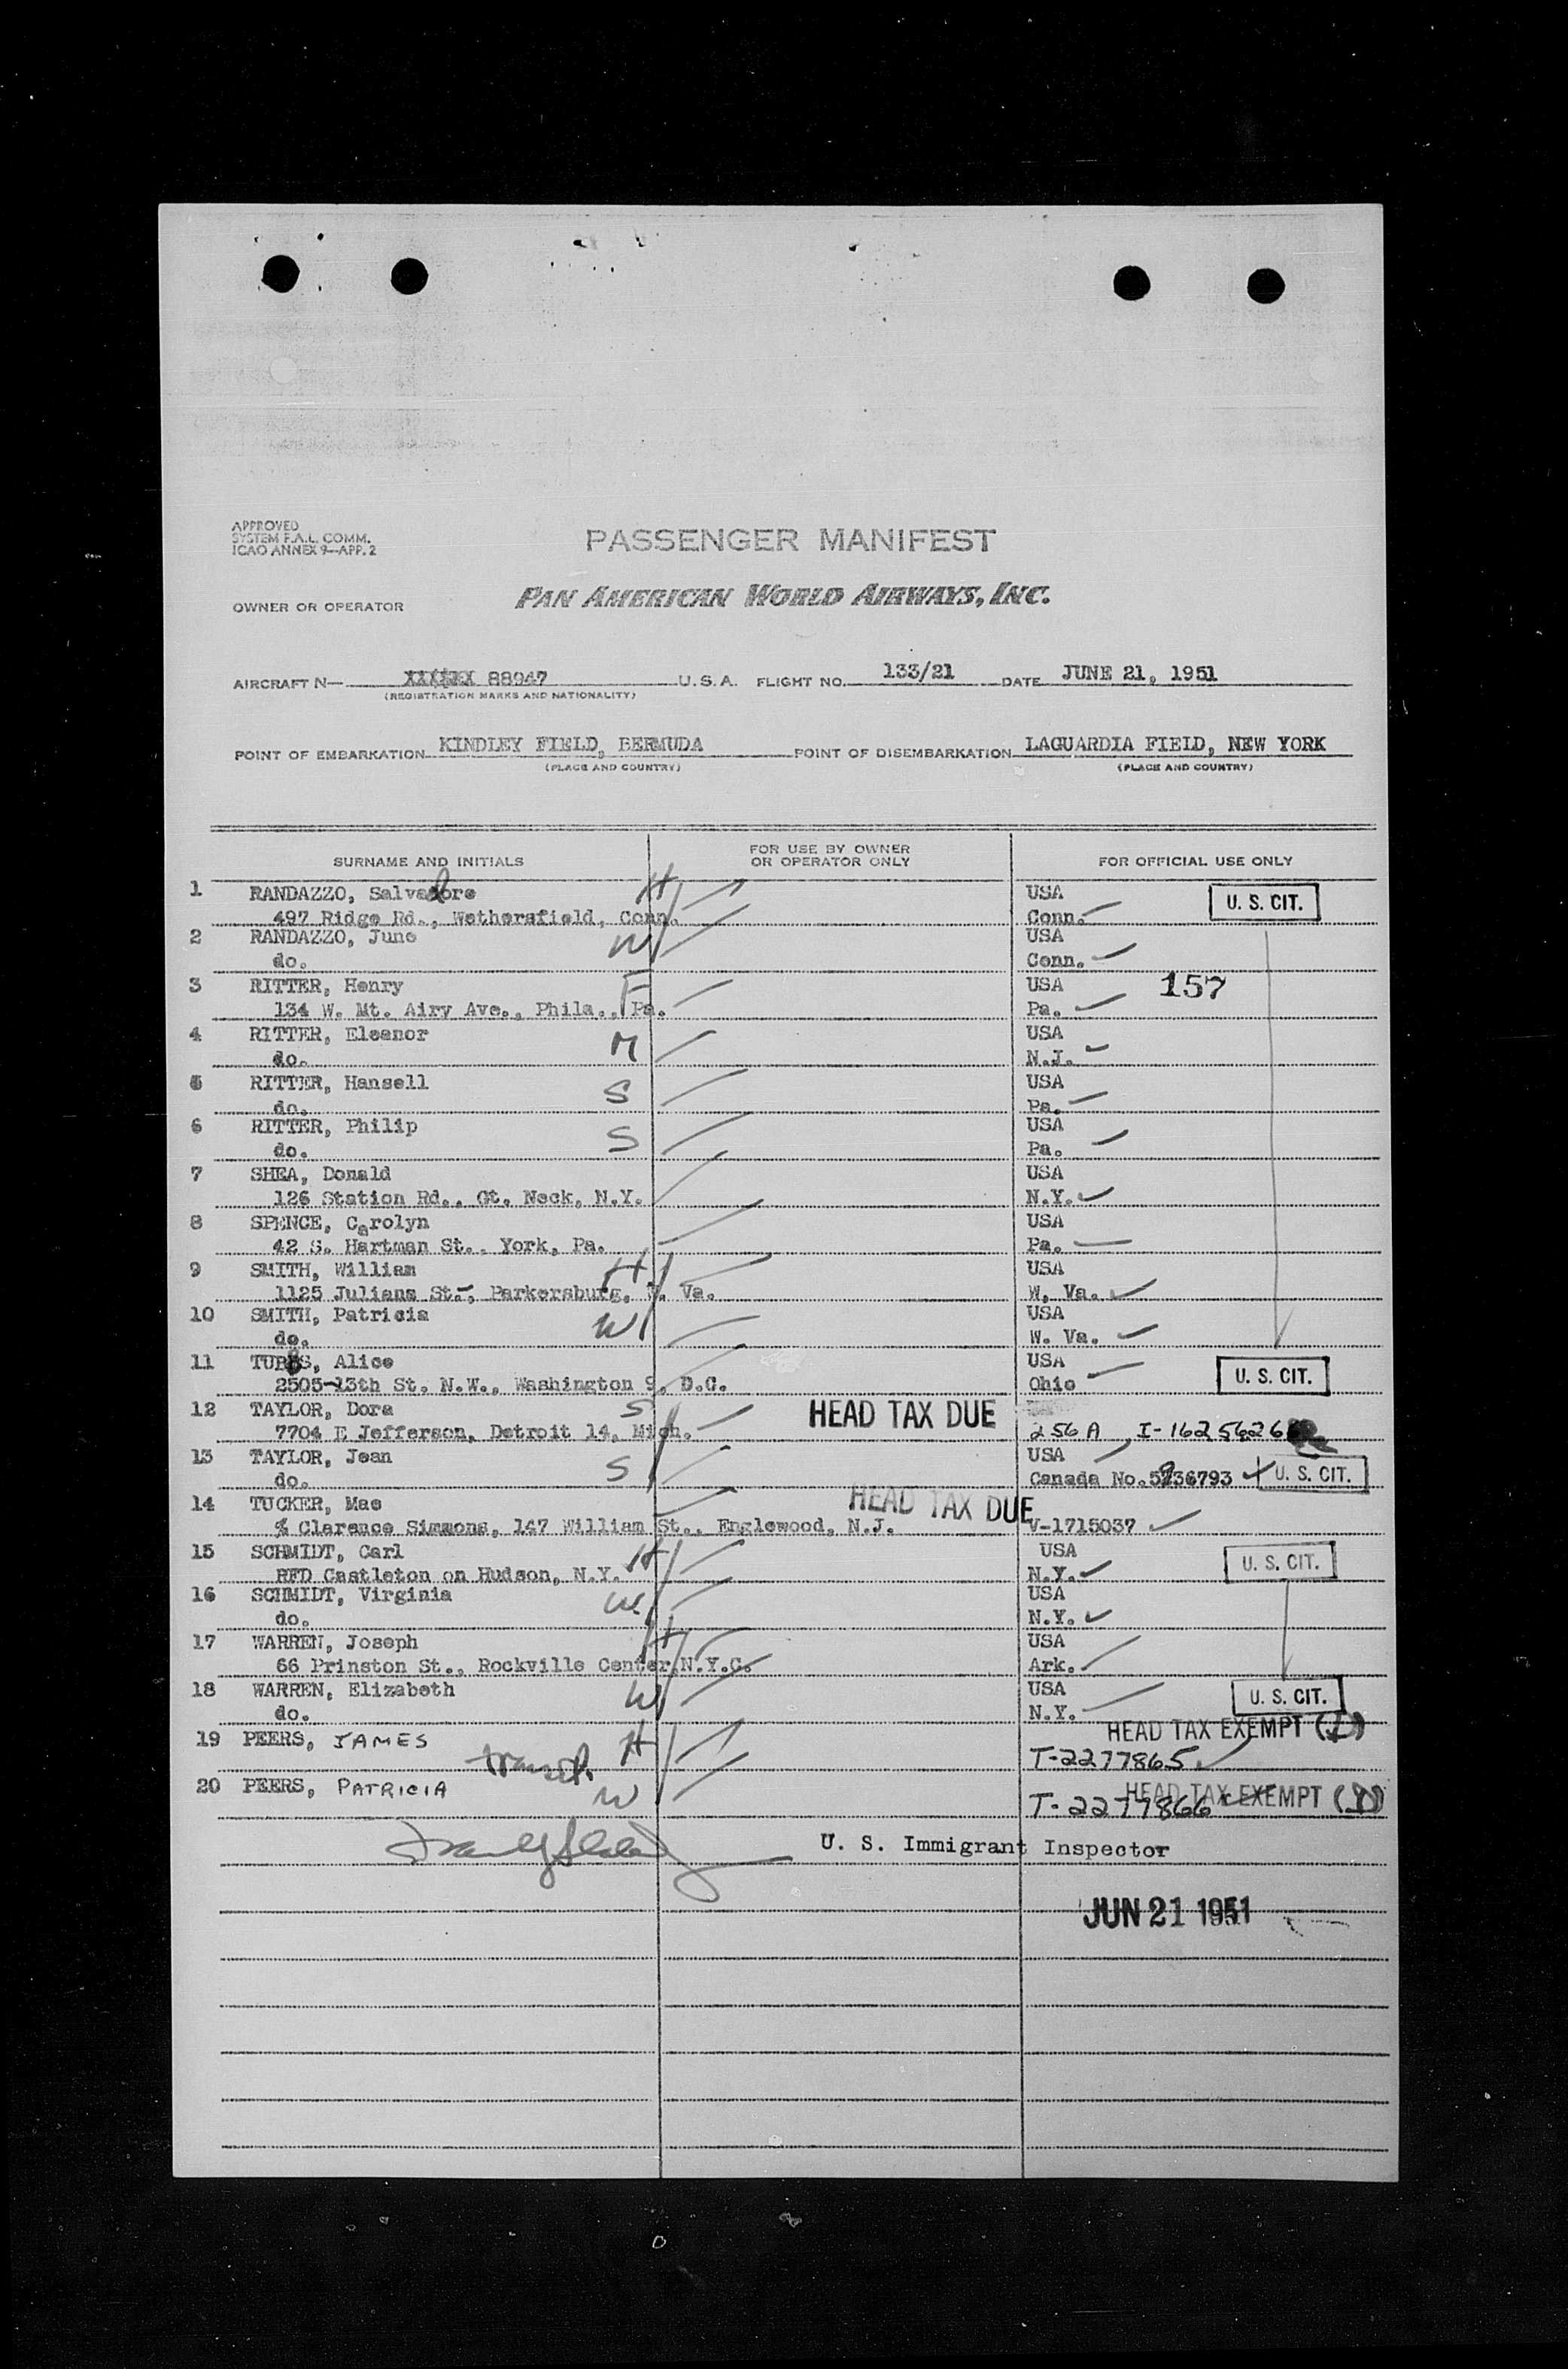 APPROVED
SYSTEM F.A.L. COMM.
ICAO ANNEX 9—APP. 2
PASSENGER MANIFEST
OWNER OR OPERATOR PAN AMERICAN WORLD AIRWAYS, INC.
AIRCRAFT N— 88947 U.S.A. FLIGHT NO. 133/21 DATE JUNE 21, 1951
(REGISTRATION MARKS AND NATIONALITY)
POINT OF EMBARKATION KINDLEY FIELD, BERMUDA POINT OF DISEMBARKATION LAGUARDIA FIELD, NEW YORK
(PLACE AND COUNTRY) (PLACE AND COUNTRY)
SURNAME AND INITIALS FOR USE BY OWNER OR OPERATOR ONLY FOR OFFICIAL USE ONLY
1 RANDAZZO, Salvadore H USA U. S. CIT.
497 Ridge Rd., Wethersfield, Conn. Conn.
2 RANDAZZO, June W USA
do. Conn.
3 RITTER, Henry F USA 157
134 W. Mt. Airy Ave., Phila., Pa. Pa.
4 RITTER, Eleanor M USA
do. N.J.
5 RITTER, Hansell S USA
do. Pa.
6 RITTER, Philip S USA
do. Pa.
7 SHEA, Donald USA
126 Station Rd., Gt. Neck, N.Y. N.Y.
8 SPENCE, Carolyn USA
42 S. Hartman St., York, Pa. Pa.
9 SMITH, William H USA
1125 Juliana St., Parkersburg, W. Va. W. Va.
10 SMITH, Patricia W USA
do. W. Va.
11 TUBBS, Alice USA U. S. CIT.
2505-13th St. N.W., Washington 9, D.C. Ohio
12 TAYLOR, Dora S HEAD TAX DUE
7704 E Jefferson, Detroit 14, Mich. 256A I-1625626
13 TAYLOR, Jean S USA
do. Canada No. 5936793 U. S. CIT.
14 TUCKER, Mae HEAD TAX DUE
% Clarence Simmons, 147 William St., Englewood, N.J. V-1715037
15 SCHMIDT, Carl H USA U. S. CIT.
RFD Castleton on Hudson, N.Y. N.Y.
16 SCHMIDT, Virginia W USA
do. N.Y.
17 WARREN, Joseph H USA
66 Prinston St., Rockville Center, N.Y.C. Ark.
18 WARREN, Elizabeth W USA U. S. CIT.
do. N.Y.
19 PEERS, JAMES H HEAD TAX EXEMPT
transit. T-2277865
20 PEERS, PATRICIA W HEAD TAX EXEMPT
T-2277866
U. S. Immigrant Inspector
JUN 21 1951